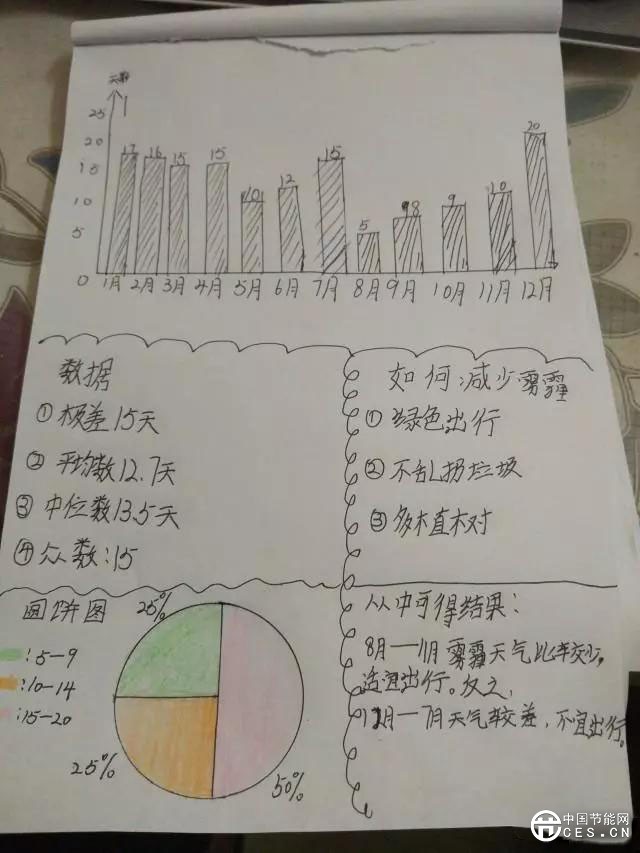 天数
25
20
15
10
5
0
17
16
15
15
10
12
15
5
8
9
10
20
1月 2月 3月 4月 5月 6月 7月 8月 9月 10月 11月 12月
数据
①极差15天
②平均数12.7天
③中位数13.5天
④众数:15
如何减少雾霾
①绿色出行
②不乱扔垃圾
③多植树
画饼图
:5-9
:10-14
:15-20
25%
25%
50%
从中可得结果:
8月-11月雾霾天气比较少,
适宜出行。反之,
12月-7月天气较差,不宜出行。
中国节能网
CES.CN